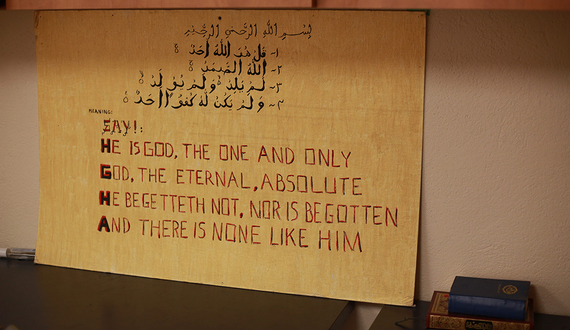 بسم الله الرحمن الرحيم
١- قل هو الله أحد
٢- الله الصمد
٣- لم يلد ولم يولد
٤- ولم يكن له كفوا أحد
MEANING:
SAY!:
HE IS GOD, THE ONE AND ONLY
GOD, THE ETERNAL, ABSOLUTE
HE BEGETTETH NOT, NOR IS BEGOTTEN
AND THERE IS NONE LIKE HIM